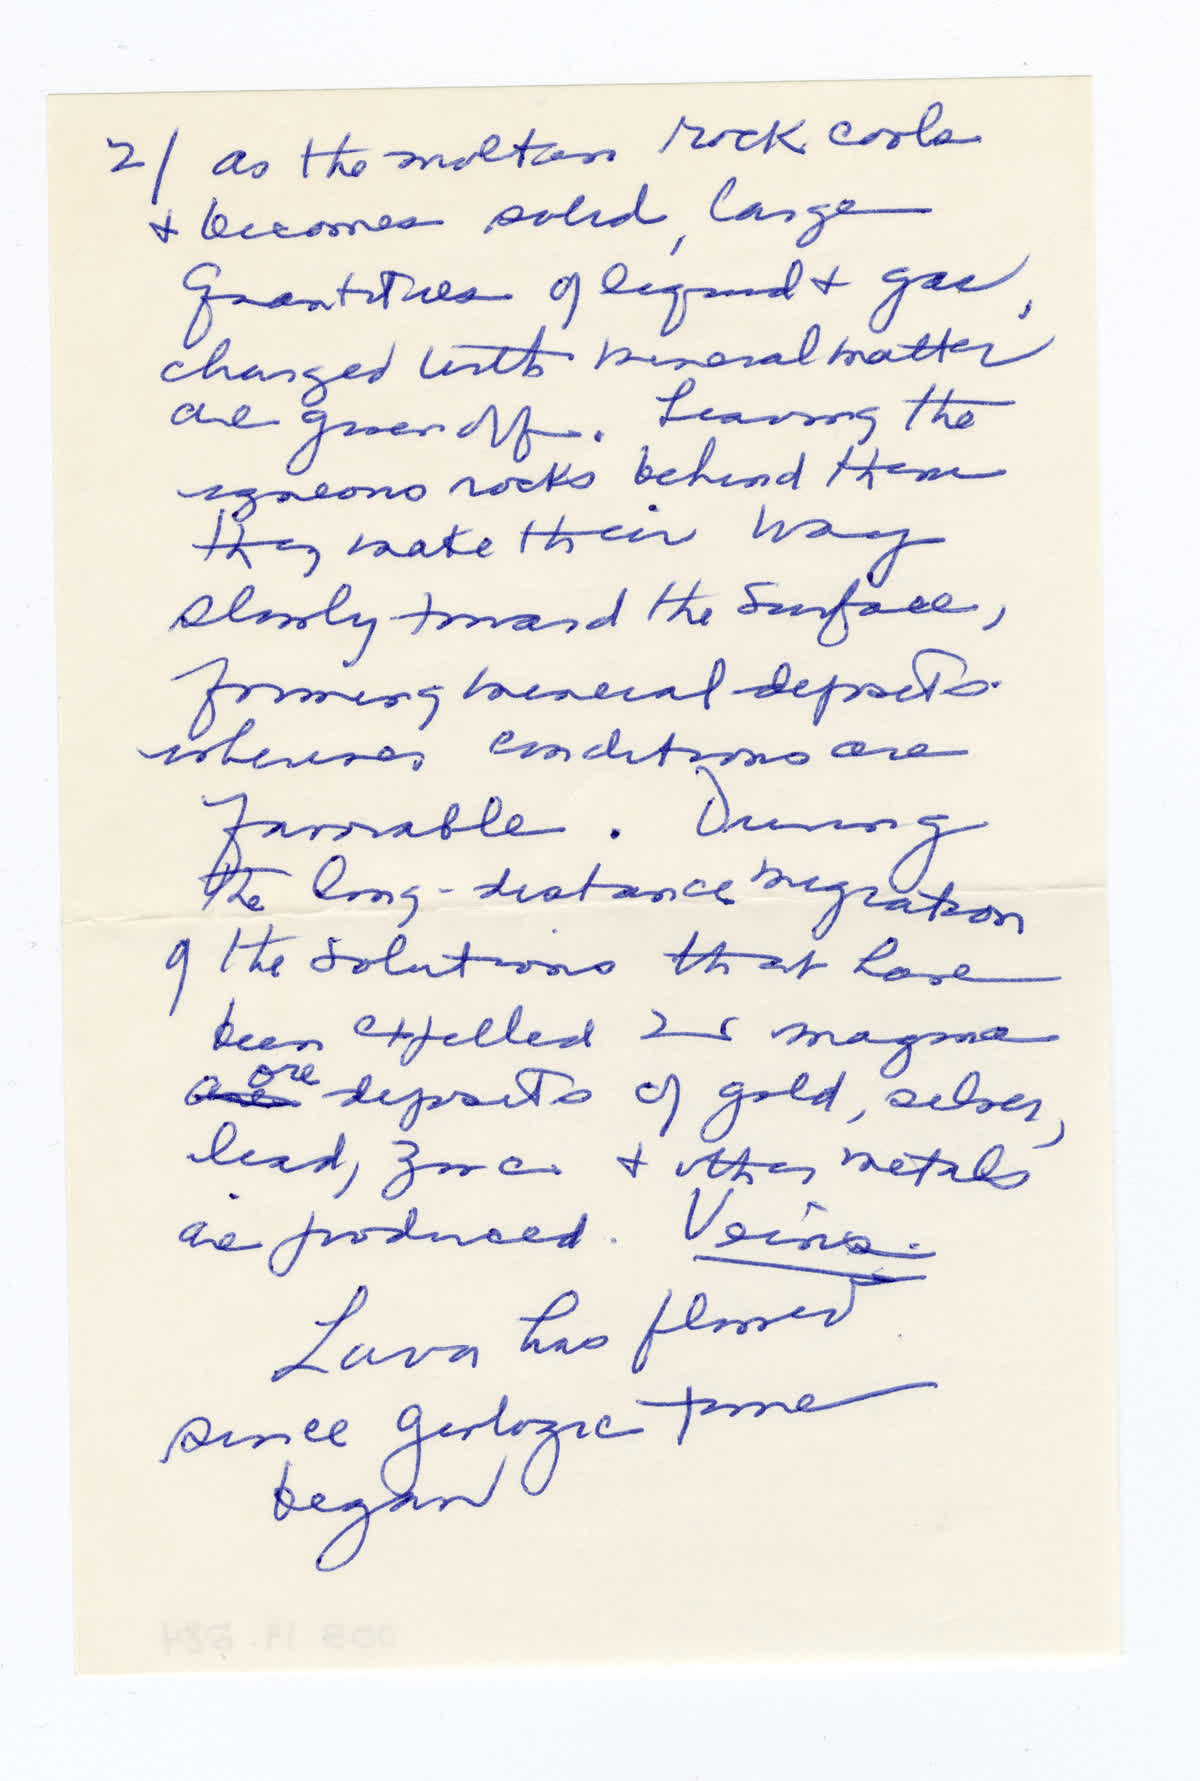 2/ as the molten rock cools
+ becomes solid, large
quantities of liquid + gas,
charged with mineral matter
are given off. Leaving the
igneous rocks behind them
they make their way
slowly toward the surface,
forming mineral deposits
wherever conditions are
favorable. During
the long-distance migration
of the solutions that have
been expelled magma
ore deposits of gold, silver,
lead, zinc + other metals
are produced. Veins.
Lava has flowed
since geologic time
began